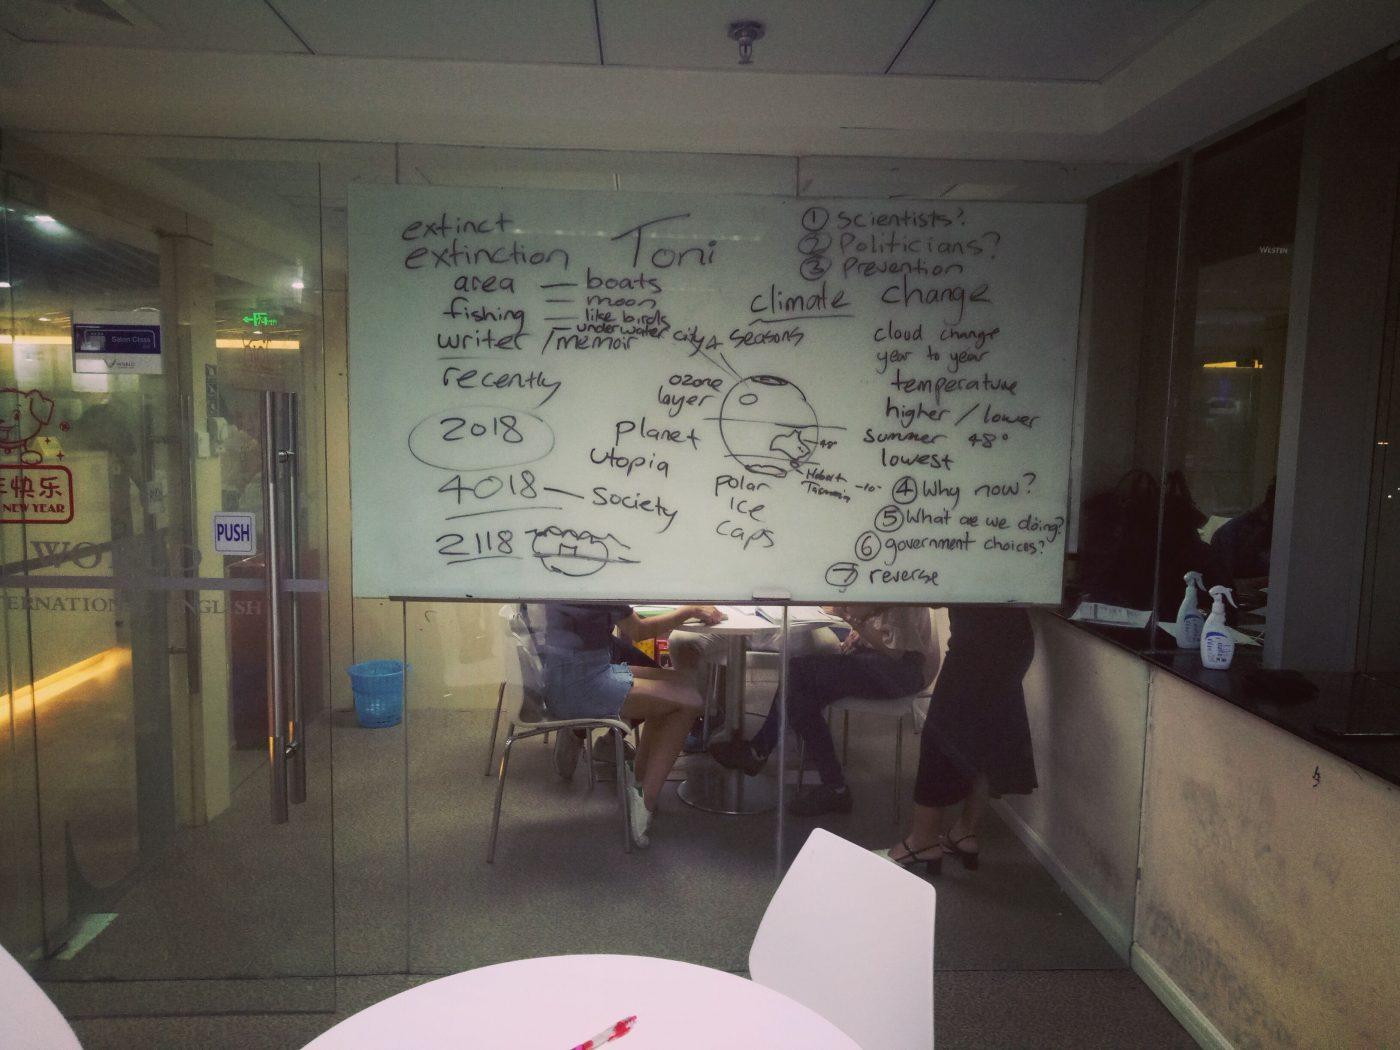 extinct
extinction
Toni
area — boats
fishing — moon
— like birds
— under water city
writer / memoir
recently
2018
4018 — society
2118
4 seasons
ozone
layer
planet
utopia
polar
ice
caps
48°
Hobart
Tasmania -10°
① Scientists?
② Politicians?
③ Prevention
climate change
cloud change
year to year
temperature
higher / lower
summer 48°
lowest
④ Why now?
⑤ What are we doing?
⑥ government choices?
⑦ reverse
Salon Class
WORLD
PUSH
年快乐
NEW YEAR
WORLD
ERNATIONAL ENGLISH
WESTIN